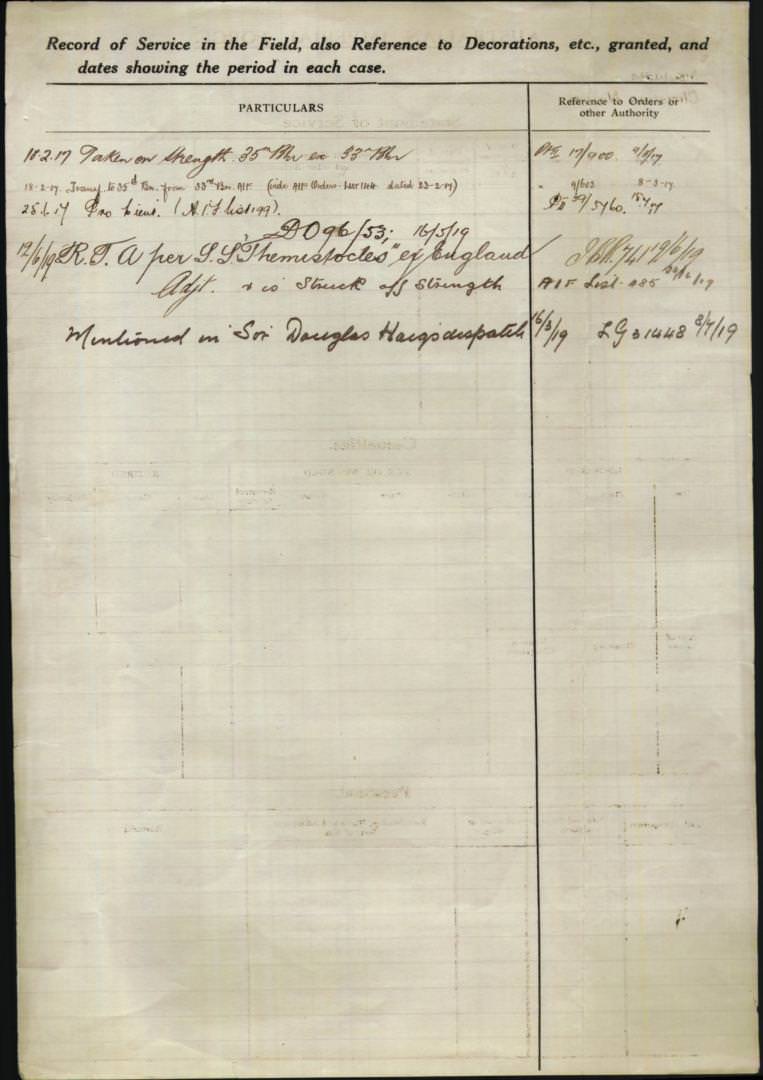 Record of Service in the Field, also Reference to Decorations, etc., granted, and
dates showing the period in each case.
PARTICULARS
Reference to Orders or
other Authority
18.2.17 Taken on Strength 35th Bn ex 33rd Bn
17/900 9/3/17
18-2-17. Transf. to 35th Bn. from 33rd Bn. AIF. (vide AIF Orders. List 114 dated 23-2-17)
" 9/603 8-3-17
25.1.17 Pro Lieut. (A.I.F. List 199).
39/5760.
DO 96/53; 16/5/19
12/6/19 R. T. A per S.S "Themistocles" ex England
741 12/6/19
Adjt. & is Struck off Strength
AIF List 485
Mentioned in Sir Douglas Haigs despatch 16/3/19 LG 31448 8/7/19
Statement of Service
Casualties.